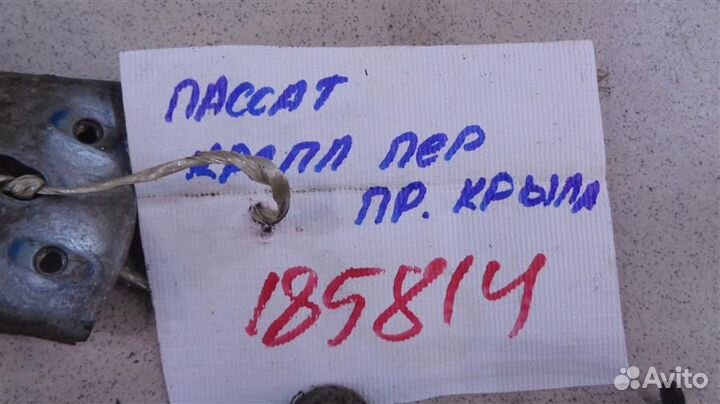 ПАССАТ
КРЕПЛ ПЕР
ПР. КРЫЛА
185814
Avito